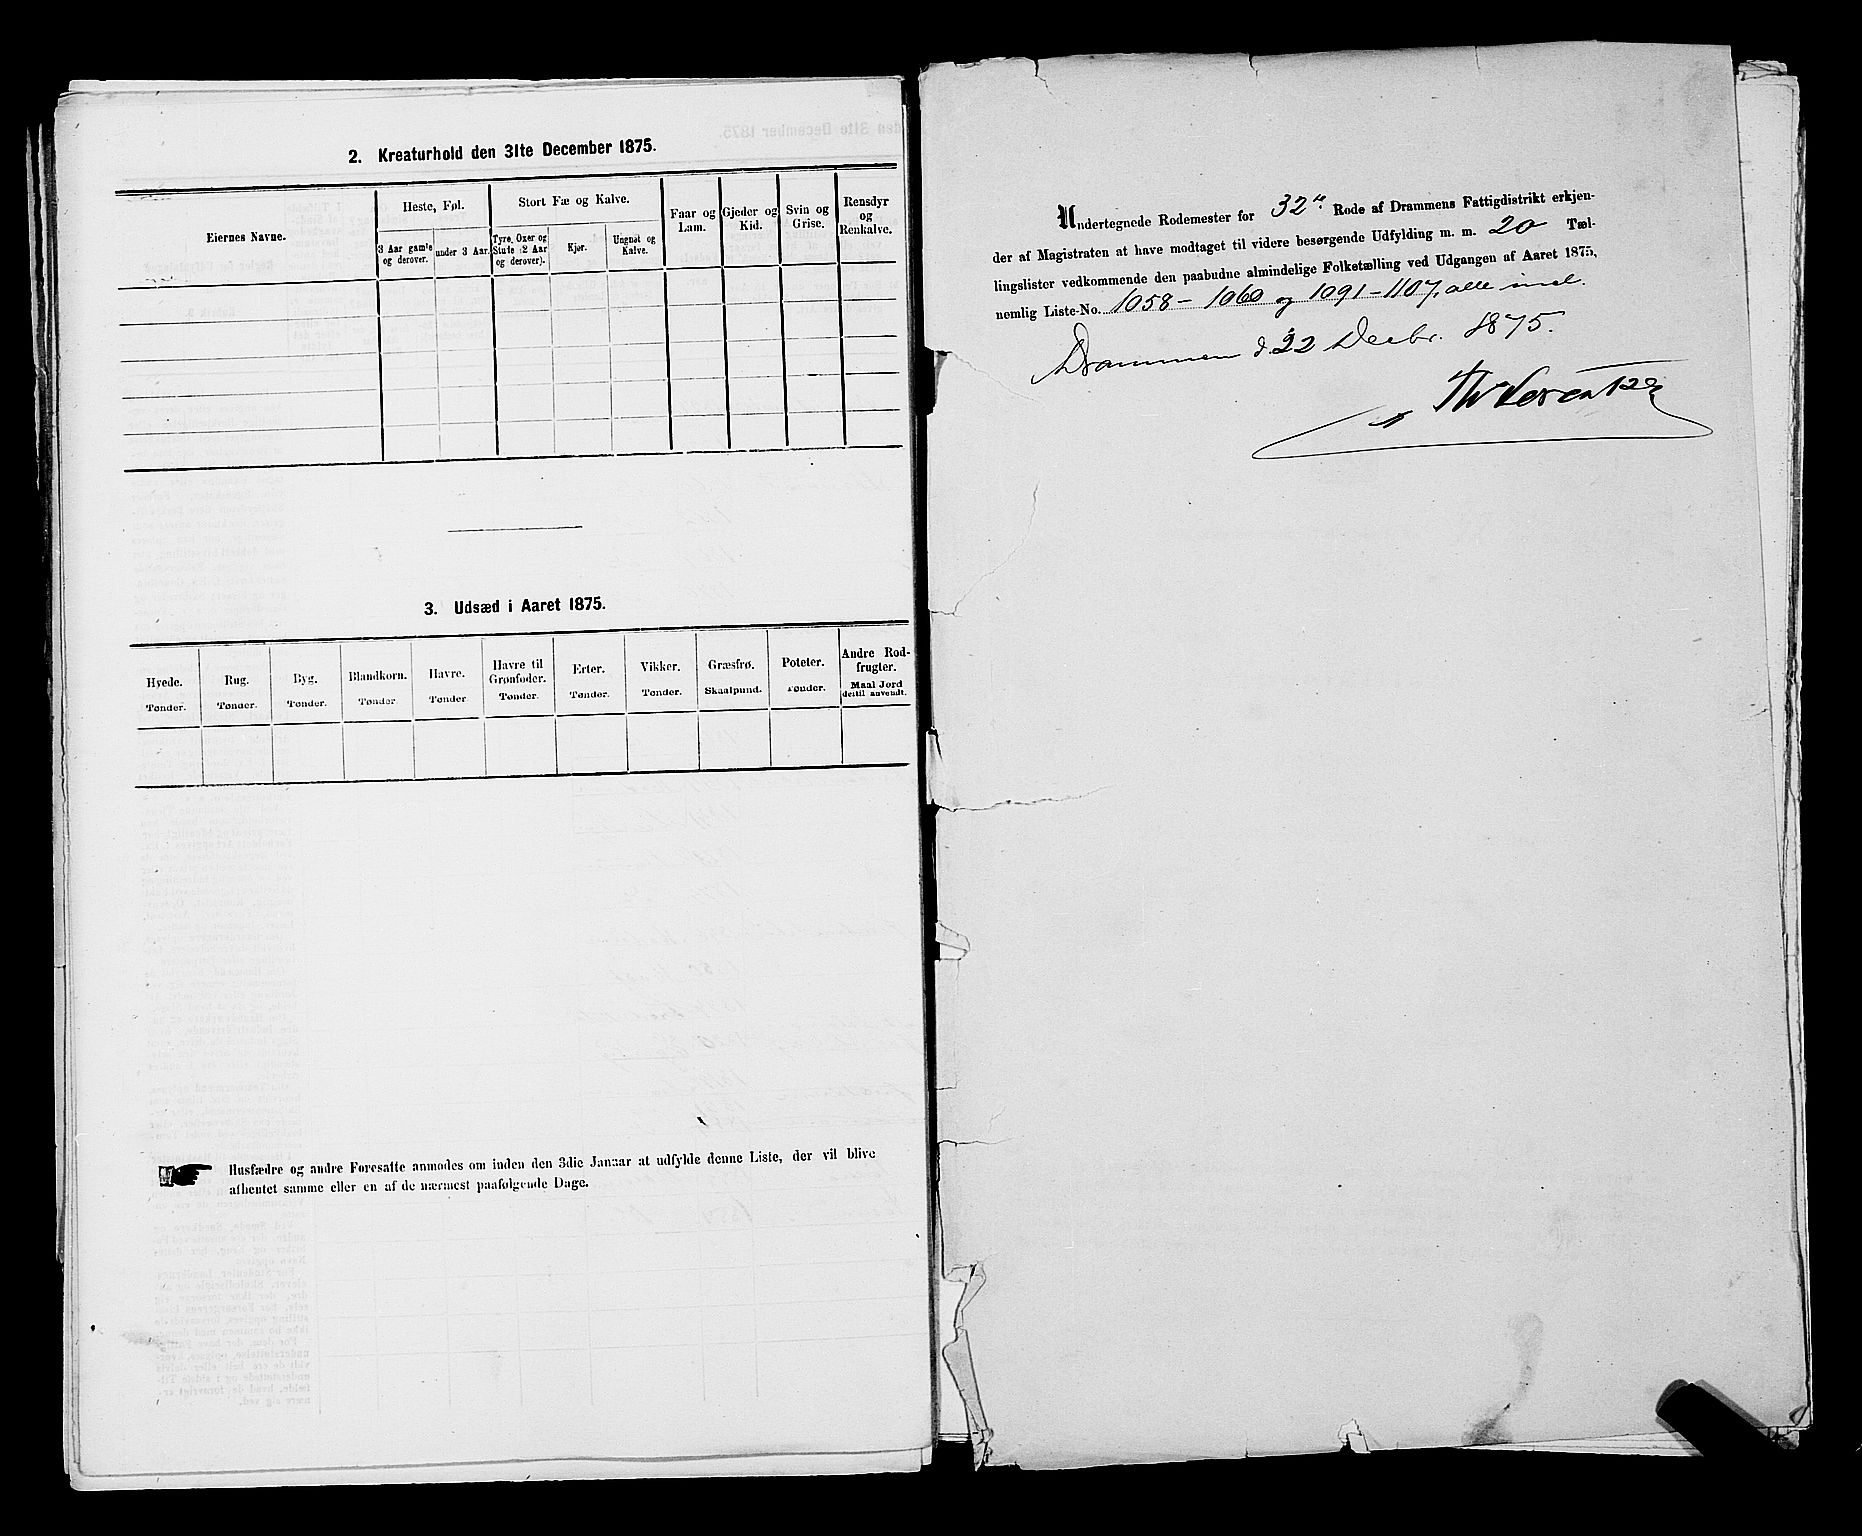 2. Kreaturhold den 31te December 1875.
Eiernes Navne.
Heste, Føl.
3 Aar gamle
og derover.
under 3 Aar.
Stort Fæ og Kalve.
Tyre, Oxer og
Stude (2 Aar
og derover).
Kjør.
Ungnøt og
Kalve.
Faar og
Lam.
Gjeder og
Kid.
Svin og
Grise.
Rensdyr
og
Renkalve.
3. Udsæd i Aaret 1875.
Hvede.
Tønder.
Rug.
Tønder.
Byg.
Tønder.
Blandkorn.
Tønder
Havre.
Tønder
Havre til
Grønfoder.
Tønder.
Erter.
Tønder.
Vikker.
Tønder.
Græsfrø.
Skaalpund.
Poteter.
Tønder.
Andre Rod-
frugter.
Maal Jord
dertil anvendt.
Husfædre og andre Foresatte anmodes om inden den 3die Januar at udfylde denne Liste, der vil blive
afhentet samme eller en af de nærmest paafølgende Dage.
Undertegnede Rodemester for 32te Rode af Drammens Fattigdistrikt erkjen-
der af Magistraten at have modtaget til videre besørgende Udfylding m. m. 20 Tæl-
lingslister vedkommende den paabudne almindelige Folketælling ved Udgangen af Aaret 1875,
nemlig Liste-No. 1058 - 1060 og 1091 - 1107, alle incl.
Drammen d. 22 Decbr. 1875.